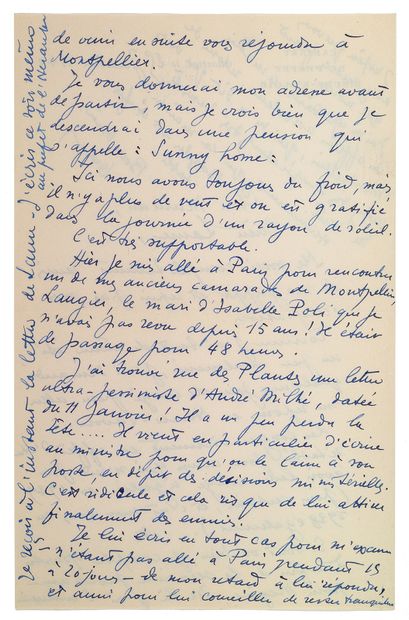 de venir ensuite vous rejoindre à
Montpellier.
Je vous donnerai mon adresse avant
de partir, mais je crois bien que je
descendrai dans une pension qui
s'appelle : Sunny home :
Ici nous avons toujours du froid, mais
il n'y a plus de vent et on est gratifié
dans la journée d'un rayon de soleil.
C'est très supportable.
Hier je suis allé à Paris pour rencontrer
un de mes anciens camarades de Montpellier,
Laugier, le mari d'Isabelle Poli que je
n'avais pas revu depuis 15 ans ! Il était
de passage pour 48 heures.
J'ai trouvé rue des Plantes une lettre
ultra-pessimiste d'André Milhé, datée
du 11 Janvier ! Il a un peu perdu la
tête.... Il vient en particulier d'écrire
au ministre pour qu'on le laisse à son
poste, en dépit des décisions ministérielles.
C'est ridicule et cela risque de lui attirer
finalement des ennuis.
Je lui écris en tout cas pour m'excuser
– n'étant pas allé à Paris pendant 15
à 20 jours – de mon retard à lui répondre,
et aussi pour lui conseiller de rester tranquille
Je reçois à l'instant la lettre de – J'écris ce soir même
au préfet de l'Hérault